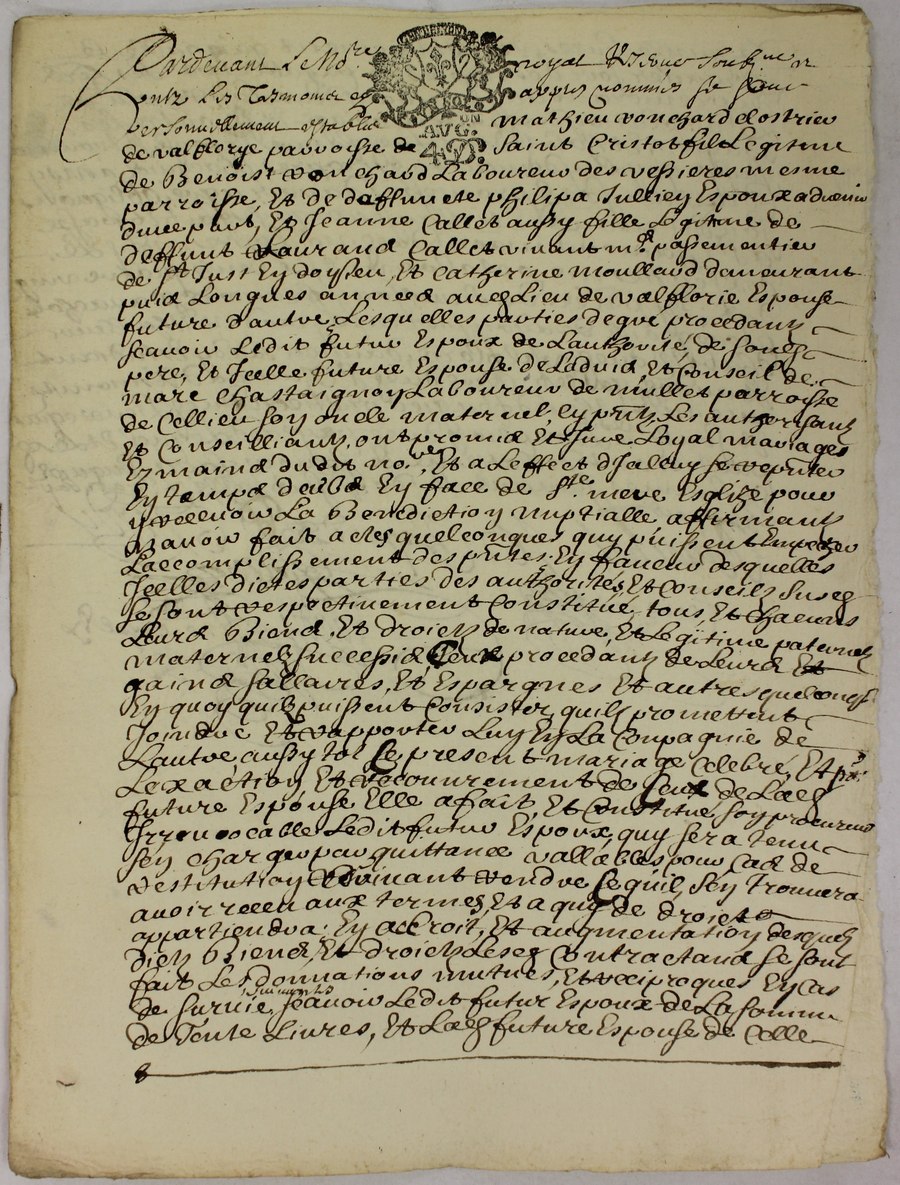 Pardevant Le No.re royal Rese.. Soubz.ne et
presents Les Tesmoins cy appres nommés se sont
personnellement establis mathieu vouchard clostrier
AVG.ON
4D.
de valflorye parroisse de Saint Cristofle fils Legitime
de Benoist vouchard Laboureur des vessieres mesme
parroisse, Et de deffuncte philipa Jullien Espoux advenir
d'une part, Et Jeanne Callet aussy fille Legitime de
deffunt Laurand Callet vivant m.e passementier
de St Just En doysieu, Et Catherine moullaud demeurant
puis Longues années aud Lieu de valflorie Espouse
future d'autre, Lesquelles parties de gré procedants
scavoir Ledit futur Espoux de L'authorité de sond
pere, Et Icelle future Espouse de Ladvis, Et Conseil de
marc Chastaignon Laboureur de mullet parroisse
de Cellieu son oncle maternel, cy pnts, Les authorisants
Et Conseilliants, ont promis Et Juré Loyal mariages
Ez mains dudit no.re, Et a L'effect d'Icelluy se representer
En temps d'eub En face de S.te mere Esglize pour
y recevoir La Benediction nuptialle, affirmants
n'avoir fait actes quelconques quy puissent Empecher
L'accomplissement des pntes. En faveur desquelles
Icelles dictes parties des authorités, Et Conseils susd
se sont respectivement Constitué tous, Et chacuns
Leurs Biens, Et droicts de nature, Et Legitime paternels
maternels successifs Ceux procedants de Leurs Et
gains sallaires, Et Espargnes Et autres quelconqs
En quoy quilz puissent Consister, quils promettent
Joindre Et rapporter L'un En La Compagnie de
L'autre, aussy tot Le present mariage celebré, Et pr
L'exaction, Et recouvrement de Ceux de Lad
future Espouse Elle a fait, Et Constitué son procureur
Irrevocable Ledit futur Espoux, quy sera tenu
s'en charger par quittances vallables pour Cas de
restitution advenant rendre Ce quil s'en trouvera
avoir receu aux termes, Et a quy de droict
appartiendra. En accroit, Et augmentation desquels
dicts Biens, Et droicts Lesd Contractans se sont
fait Les donnations mutues, Et reciproques En cas
de survie suivantes scavoir Ledit futur Espoux de La somme
de Trente Livres, Et Lad future Espouse de Celle